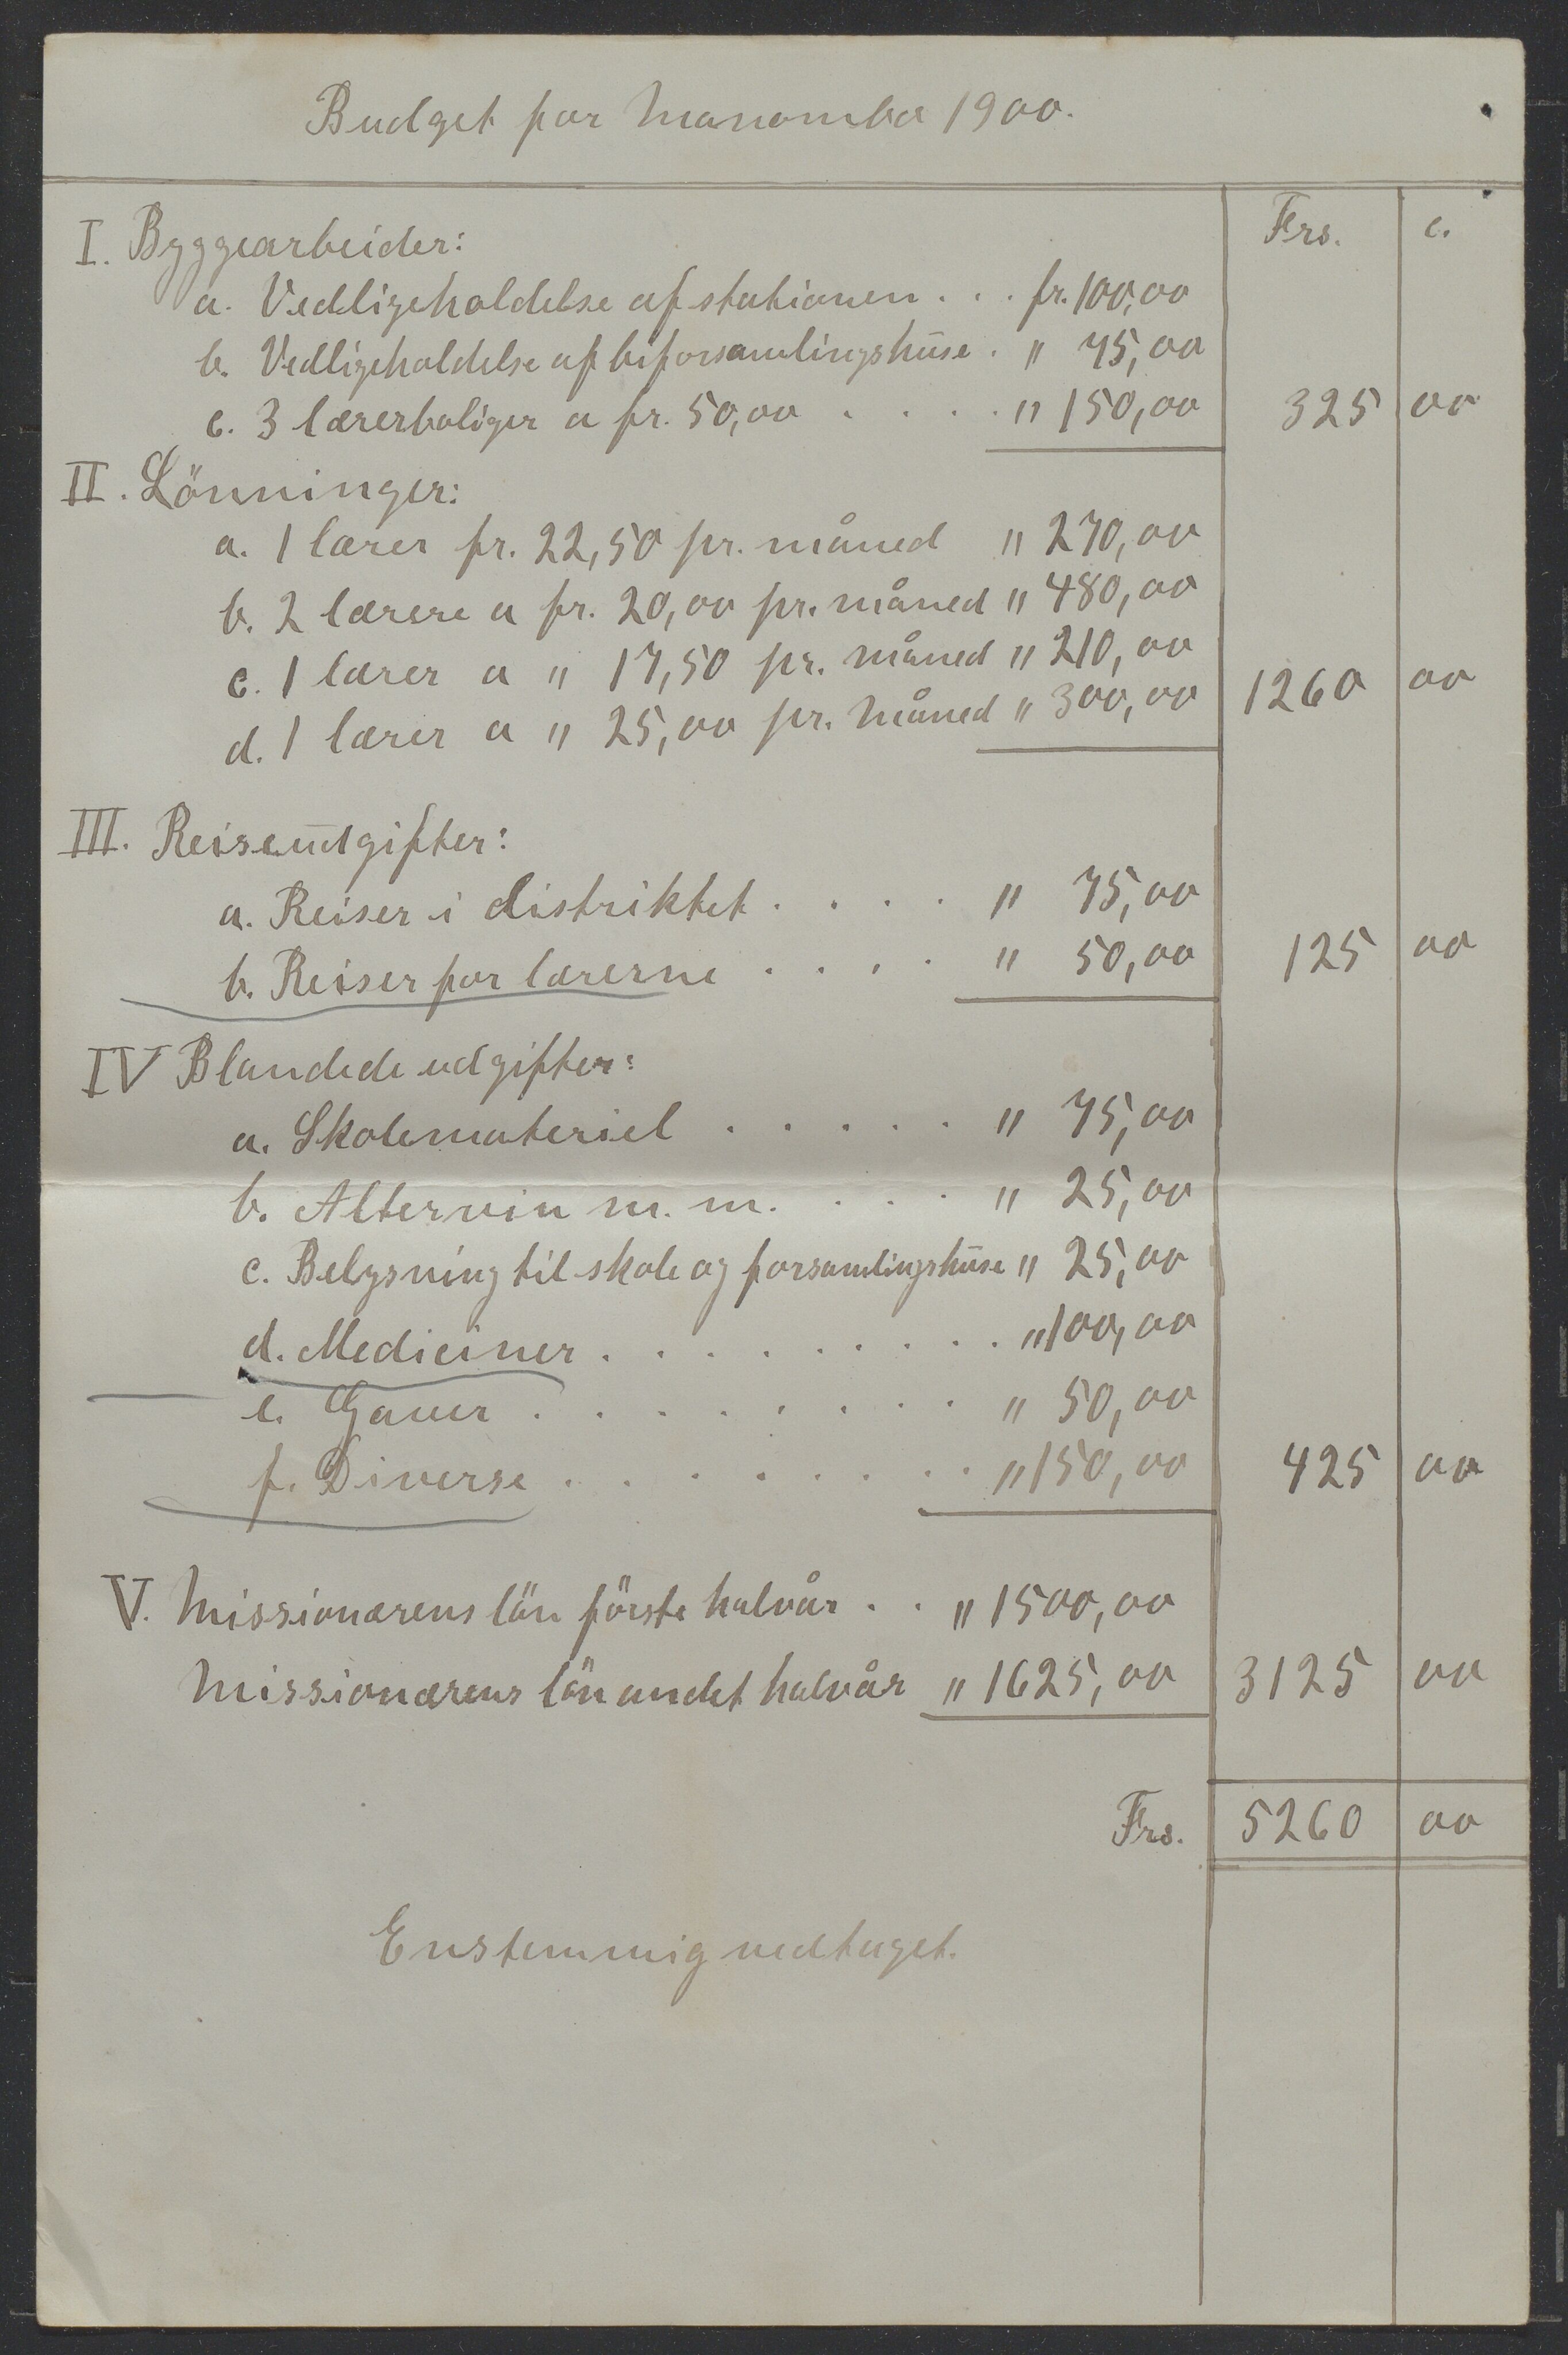 Budget for Manombo 1900.
Frs. c.
I. Byggearbeider:
a. Vedligeholdelse af stationen . . . fr. 100,00
b. Vedligeholdelse af biforsamlingshuse . " 75,00
c. 3 lærerboliger a fr. 50,00 . . . . " 150,00 325 00
II. Lönninger:
a. 1 lærer fr. 22,50 pr. måned " 270,00
b. 2 lærere a fr. 20,00 pr. måned " 480,00
c. 1 lærer a " 17,50 pr. måned " 210,00
d. 1 lærer a " 25,00 pr. måned " 300,00 1260 00
III. Reiseudgifter:
a. Reiser i distriktet . . . . " 75,00
b. Reiser for lærerne . . . . " 50,00 125 00
IV Blandede udgifter:
a. Skolemateriel . . . . . " 75,00
b. Altervin m. m. . . . " 25,00
c. Belysning til skole og forsamlingshuse " 25,00
d. Mediciner . . . . . . . . . " 100,00
e. Gaver . . . . . . . . " 50,00
f. Diverse . . . . . . . . . " 150,00 425 00
V. Missionærens lön förste halvår . . " 1500,00
Missionærens lön andet halvår " 1625,00 3125 00
Frs. 5260 00
Enstemmig vedtaget.